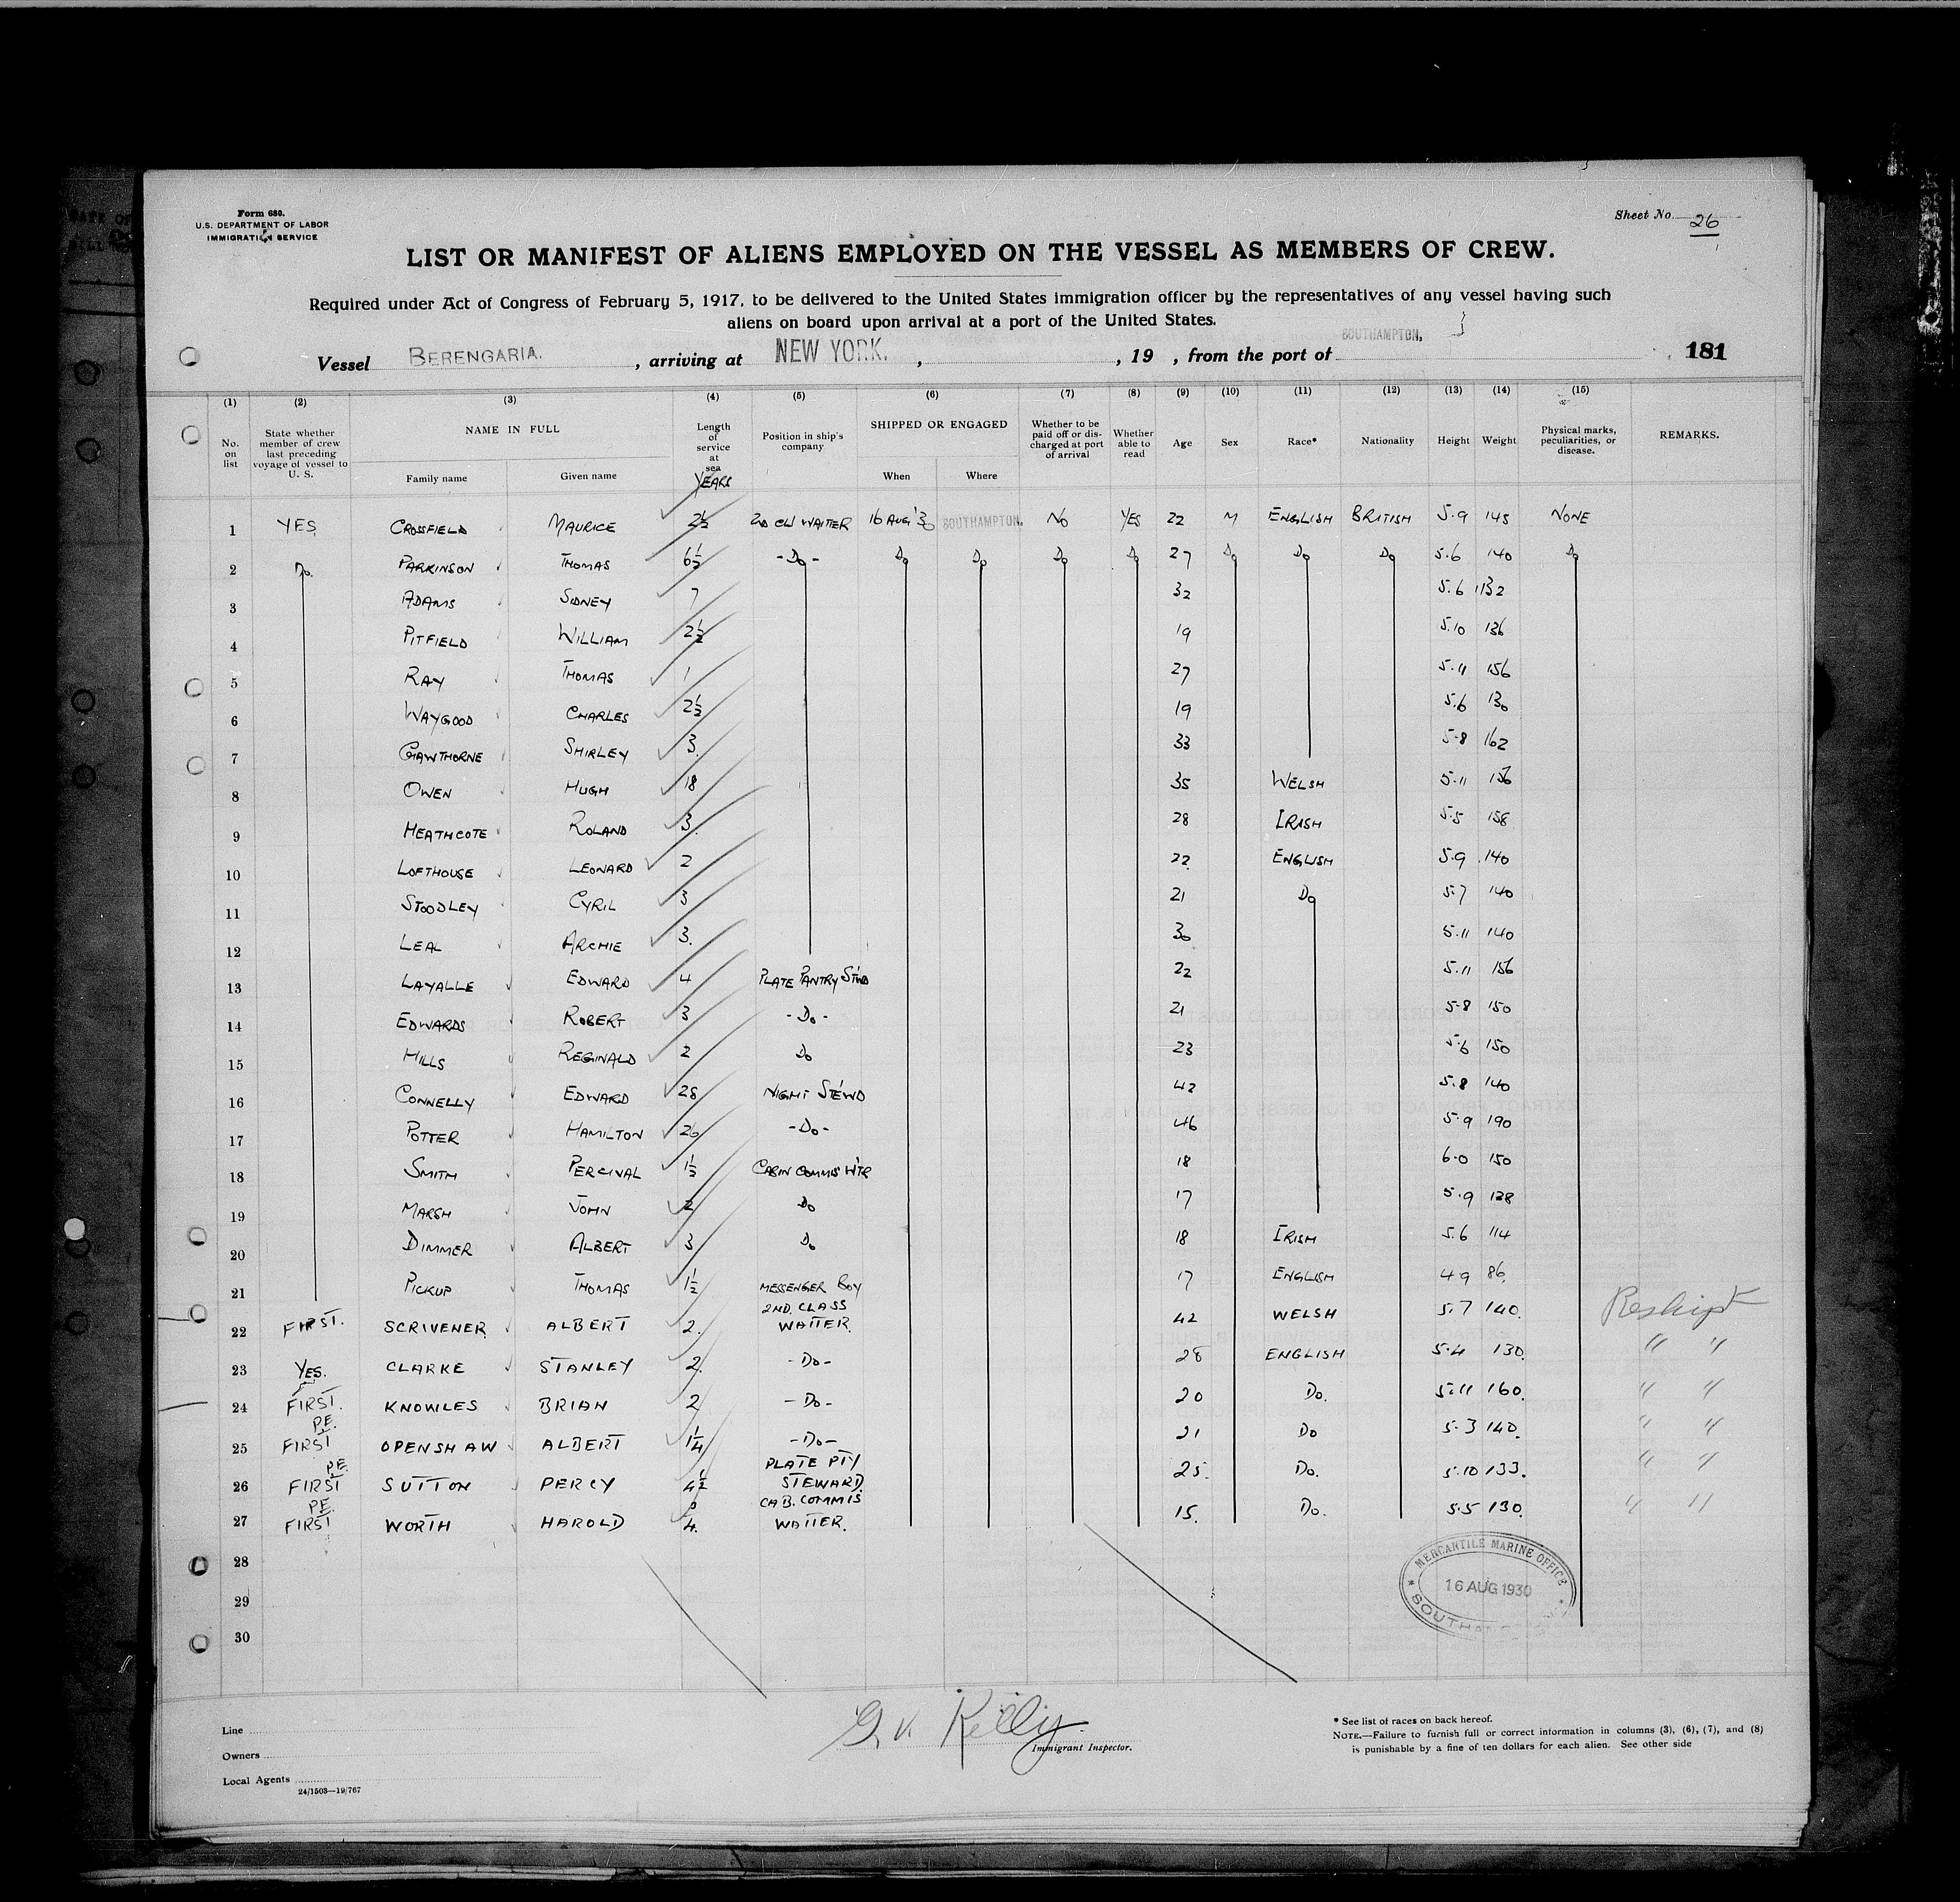 Form 680.
U.S. DEPARTMENT OF LABOR
IMMIGRATION SERVICE
Sheet No. 26
LIST OR MANIFEST OF ALIENS EMPLOYED ON THE VESSEL AS MEMBERS OF CREW.
Required under Act of Congress of February 5, 1917, to be delivered to the United States immigration officer by the representatives of any vessel having such
aliens on board upon arrival at a port of the United States.
Vessel BERENGARIA. , arriving at NEW YORK. , , 19 , from the port of SOUTHAMPTON. 181
(1) (2) (3) (4) (5) (6) (7) (8) (9) (10) (11) (12) (13) (14) (15)
No. on list State whether member of crew last preceding voyage of vessel to U. S. NAME IN FULL Family name Given name Length of service at sea YEARS Position in ship's company SHIPPED OR ENGAGED When Where Whether to be paid off or discharged at port of arrival Whether able to read Age Sex Race* Nationality Height Weight Physical marks, peculiarities, or disease. REMARKS.
1 YES CROSSFIELD MAURICE 2½ 2ND CL WAITER 16 AUG '30 SOUTHAMPTON. NO YES 22 M ENGLISH BRITISH 5.9 145 NONE
2 Do. PARKINSON THOMAS 6½ -Do- Do Do Do Do 27 Do Do Do 5.6 140 Do
3 ADAMS SIDNEY 7 32 5.6 132
4 PITFIELD WILLIAM 2½ 19 5.10 136
5 RAY THOMAS 1 27 5.11 156
6 WAYGOOD CHARLES 2½ 19 5.6 130
7 GAWTHORNE SHIRLEY 3. 33 5-8 162
8 OWEN HUGH 18 35 WELSH 5.11 156
9 HEATHCOTE ROLAND 3. 28 IRISH 5.5 158
10 LOFTHOUSE LEONARD 2 22 ENGLISH 5.9 140
11 STOODLEY CYRIL 3 21 Do 5.7 140
12 LEAL ARCHIE 3. 30 5.11 140
13 LAYALLE EDWARD 4 PLATE PANTRY STWD 22 5.11 156
14 EDWARDS ROBERT 3 -Do- 21 5-8 150
15 HILLS REGINALD 2 Do 23 5.6 150
16 CONNELLY EDWARD 28 NIGHT STEWD 42 5.8 140
17 POTTER HAMILTON 26 -Do- 46 5.9 190
18 SMITH PERCIVAL 1½ CABIN COMMIS WTR 18 6-0 150
19 MARSH JOHN 2 Do 17 5.9 128
20 DIMMER ALBERT 3 Do 18 IRISH 5.6 114
21 PICKUP THOMAS 1½ MESSENGER BOY 17 ENGLISH 4 9 86
22 FIRST. SCRIVENER ALBERT 2. 2ND. CLASS WAITER. 42 WELSH 5.7 140. Reshipt
23 YES. CLARKE STANLEY 2. -Do- 28 ENGLISH 5.4 130. " "
24 FIRST. KNOWLES BRIAN 2 -Do- 20 Do. 5.11 160. " "
25 P.E. FIRST OPENSHAW ALBERT 1¼ -Do- 21 Do 5.3 140. " "
26 P.E. FIRST SUTTON PERCY 4½ PLATE PTY STEWARD. 25. Do. 5.10 133. " "
27 P.E. FIRST WORTH HAROLD 4. CAB. COMMIS WAITER. 15. Do. 5.5 130. " "
28
29
30
MERCANTILE MARINE OFFICE
16 AUG 1930
Line
Owners
Local Agents
24/1503—19/767
G. V. Kelly
Immigrant Inspector.
* See list of races on back hereof.
NOTE.—Failure to furnish full or correct information in columns (3), (6), (7), and (8)
is punishable by a fine of ten dollars for each alien. See other side